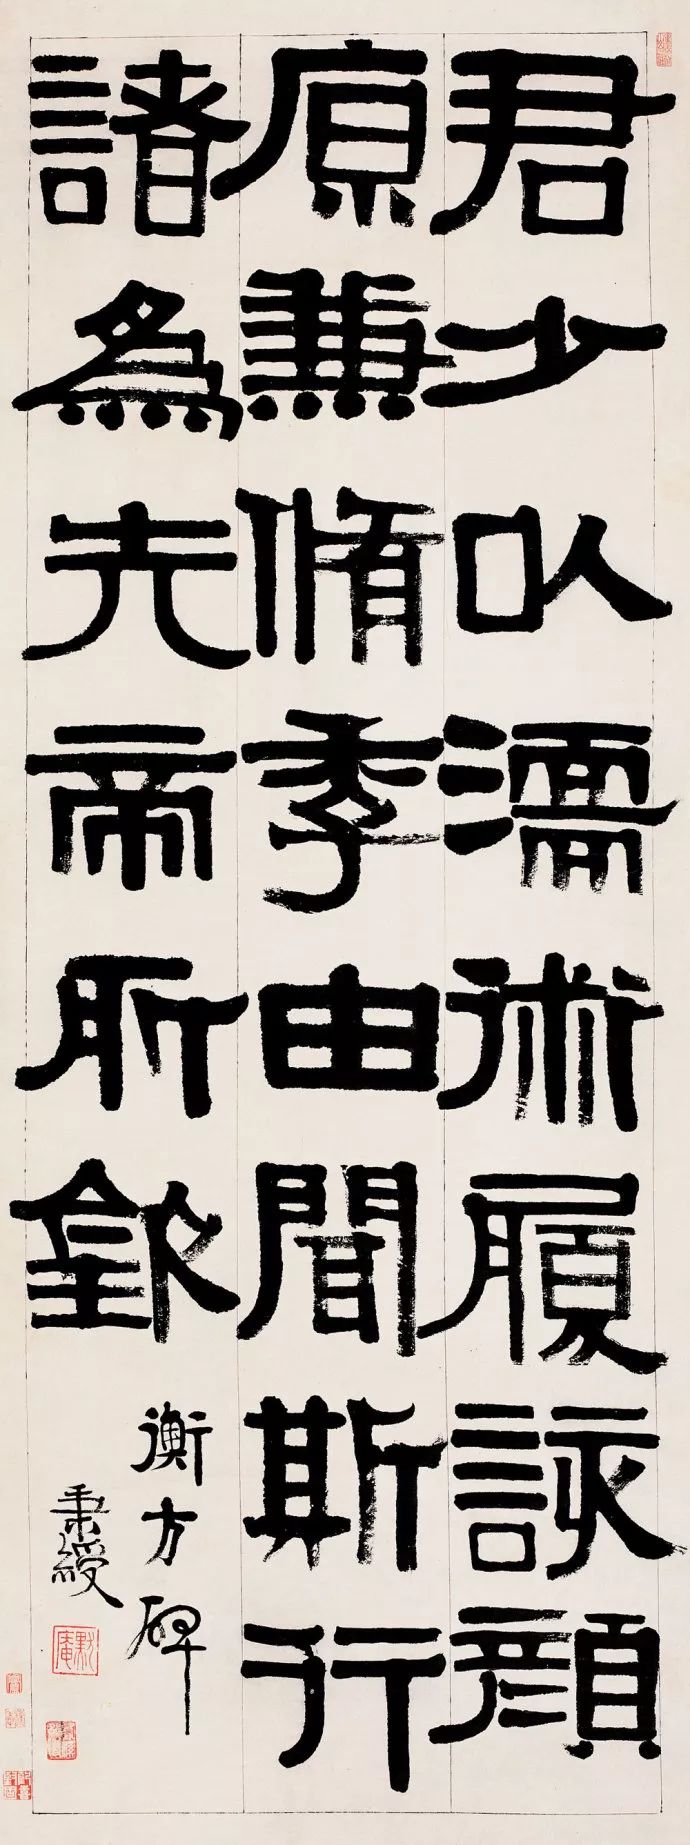 君少以濡術履該顏
原兼脩季由聞斯行
諸為先帝所欽
衡方碑
秉綬
默庵